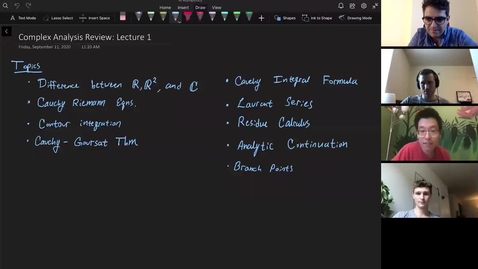 Home Insert Draw View
Text Mode Lasso Select Insert Space
Shapes Ink to Shape Drawing Mode
Complex Analysis Review: Lecture 1
Friday, September 11, 2020 11:20 AM
Topics
• Difference between ℝ, ℝ², and ℂ
• Cauchy Riemann Eqns.
• Contour integration
• Cauchy - Goursat Thm
• Cauchy Integral Formula
• Laurent Series
• Residue Calculus
• Analytic Continuation
• Branch Points